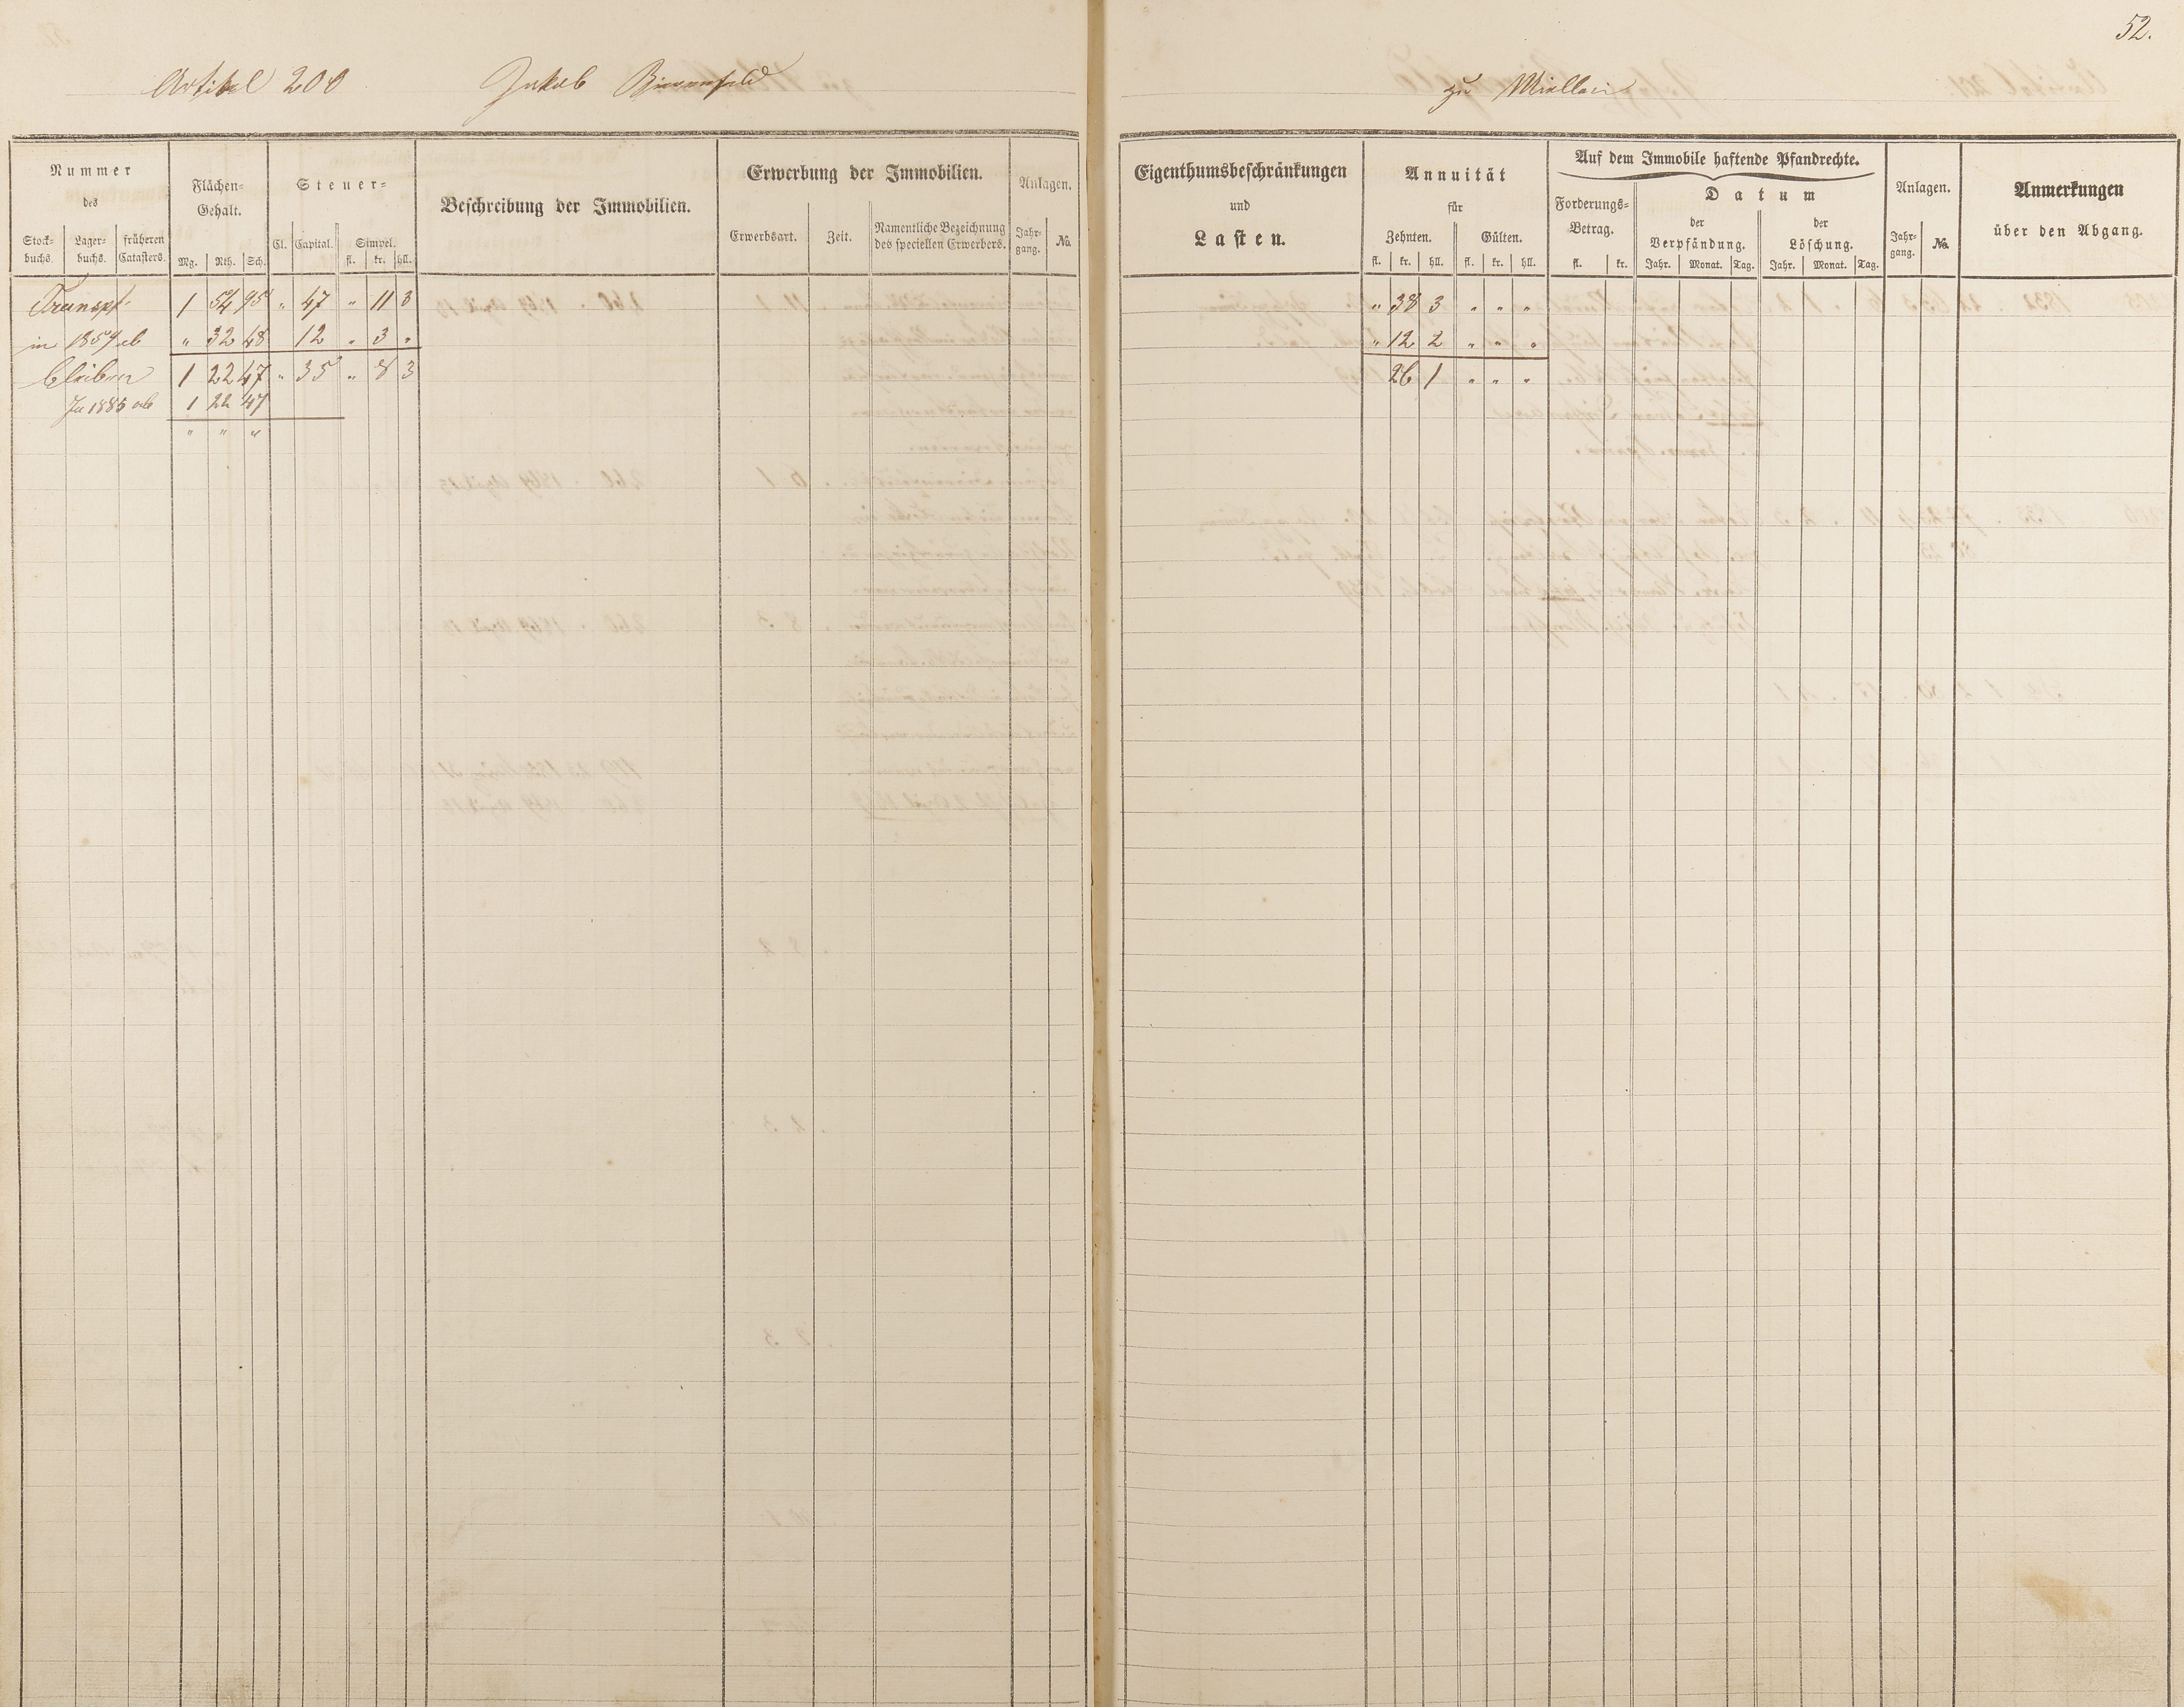 52.
Artikel 200 Jakob Birnenfeld zu Miellen
Nummer
des
Stock-
buchs.
Lager-
buchs.
früheren
Catasters.
Flächen-
Gehalt.
Mg. Rth. Sch.
Steuer-
Cl. Capital. Simpel.
fl. kr. hll.
Beschreibung der Immobilien.
Erwerbung der Immobilien.
Erwerbsart. Zeit.
Namentliche Bezeichnung
des speciellen Erwerbers.
Anlagen.
Jahr-
gang.
No.
Eigenthumsbeschränkungen
und
Lasten.
Annuität
für
Zehnten. Gülten.
fl. kr. hll. fl. kr. hll.
Auf dem Immobile haftende Pfandrechte.
Forderungs-
Betrag.
fl. kr.
Datum
der
Verpfändung.
Jahr. Monat. Tag.
der
Löschung.
Jahr. Monat. Tag.
Anlagen.
Jahr-
gang.
No.
Anmerkungen
über den Abgang.
Transpt. 1 54 95 " 47 " 11 3 " 38 3 " " "
in 1859 ab " 32 48 12 " 3 " " 12 2 " " "
bleiben 1 22 47 " 35 " 8 3 26 1 " " "
In 1885 ab 1 22 47
" " "